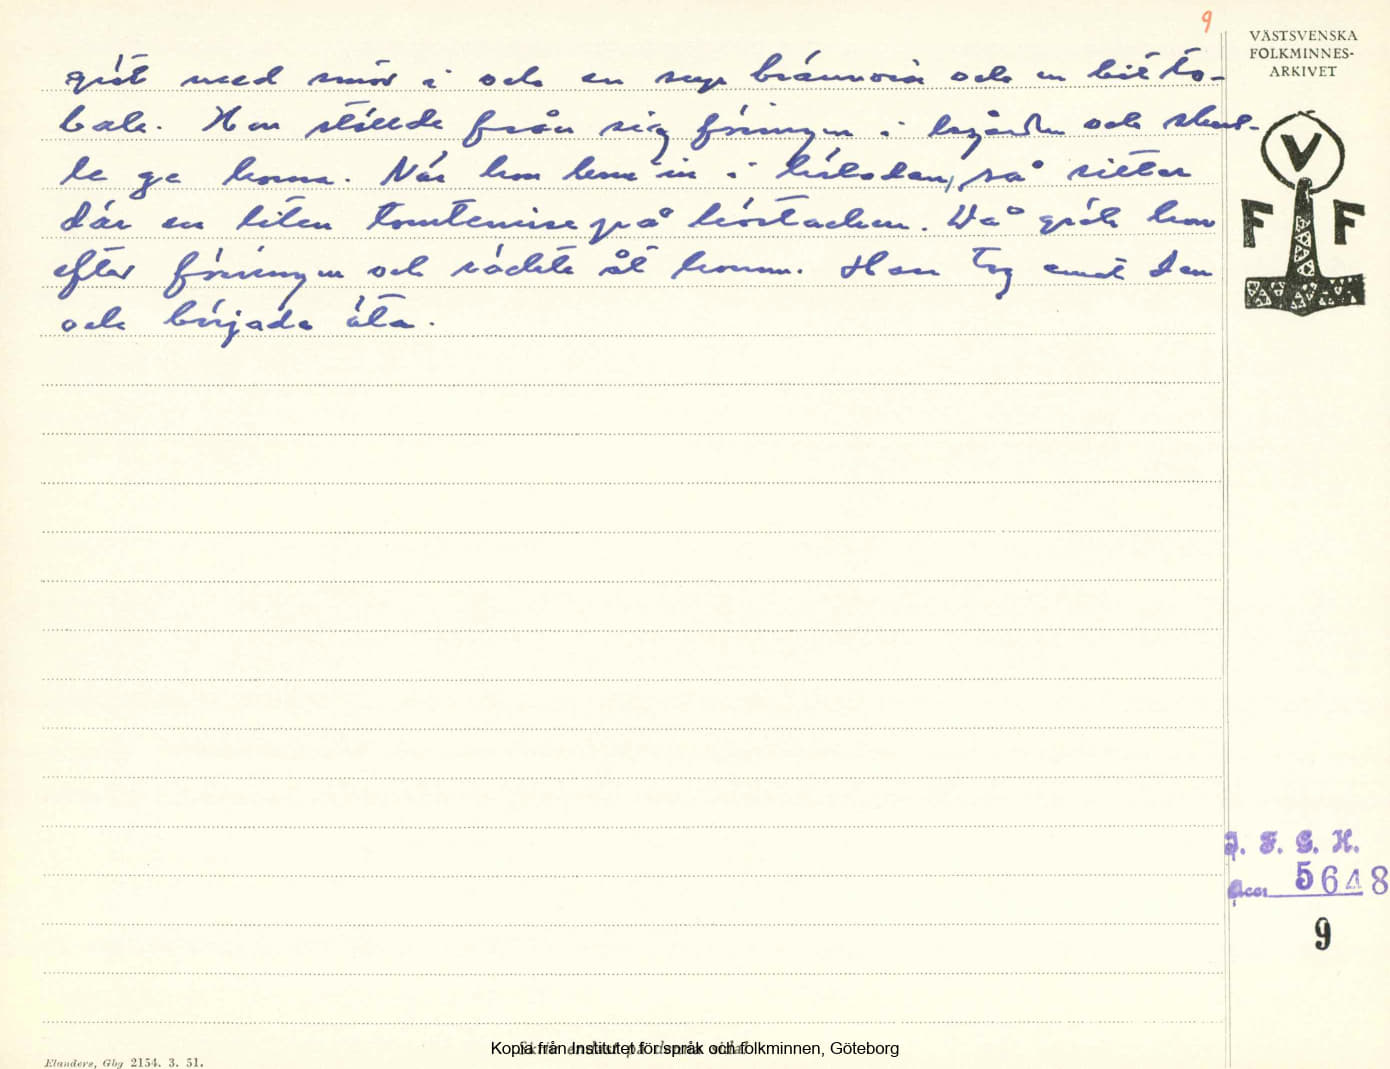 9
VÄSTSVENSKA
FOLKMINNES-
ARKIVET
gröt med smör i och en sup brännvin och en bit to-
bak. Hon ställde från sig föringen i lagården och skul-
le ge korna. När hon kom in i höladan, så sitter
där en liten tomtenisse på höstacken. Då gick hon
efter föringen och räckte åt honom. Han tog emot den
och började äta.
V
F F
I. F. G. H.
Acc. 5648
9
Kopia från Institutet för språk och folkminnen, Göteborg
Elanders, Gbg 2154. 3. 51.